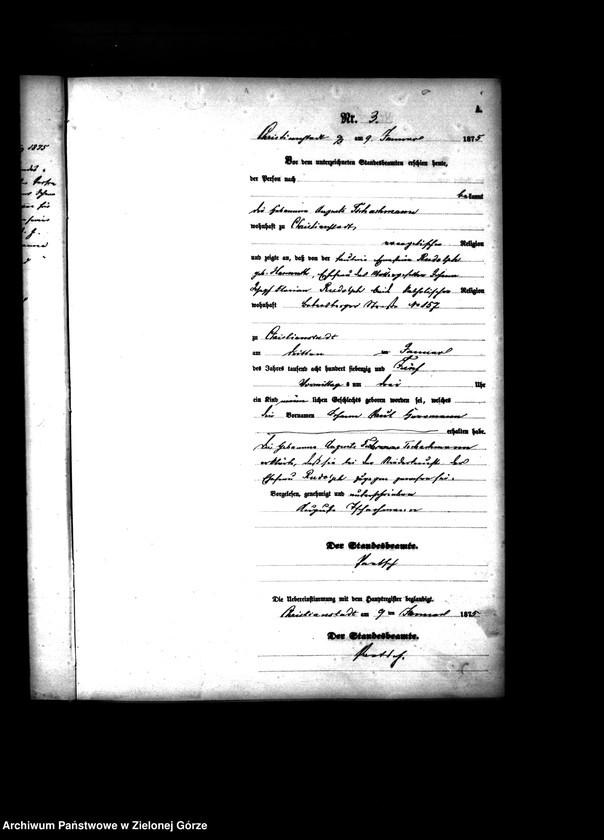 A.
Nr. 3.
Christianstadt am 9 Januar 1875.
Vor dem unterzeichneten Standesbeamten erschien heute,
der Person nach
bekannt
die Hebamme Auguste Tschachmann
wohnhaft zu Christianstadt,
evangelischer Religion
und zeigte an, daß von der Rudolph
geb. Ehefrau des Johann
Joseph Florian Rudolph beide katholischer Religion
wohnhaft Straße No 157
zu Christianstadt
am dritten Januar
des Jahres tausend acht hundert siebenzig und Fünf
Vormittags um drei Uhr
ein Kind männlichen Geschlechts geboren worden sei, welches
die Vornamen Johann Paul Herrmann
erhalten habe.
Die Hebamme Auguste Tschachmann
erklärte, daß sie bei der Niederkunft der
Ehefrau Rudolph zugegen gewesen sei.
Vorgelesen, genehmigt und unterschrieben
Auguste Tschachmann
Der Standesbeamte.
Die Uebereinstimmung mit dem Hauptregister beglaubigt.
Christianstadt am 9 Januar 1875
Der Standesbeamte.
Archiwum Państwowe w Zielonej Górze